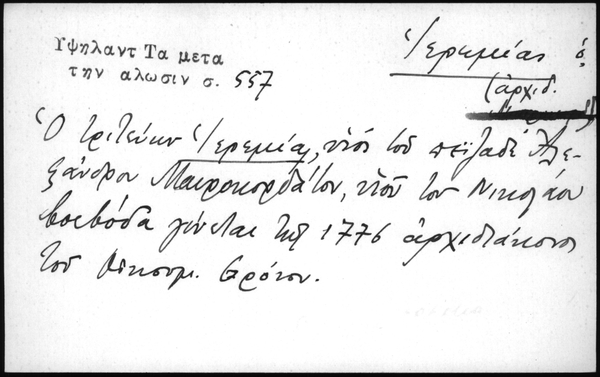 Υψηλαντ Τα μετα
την αλωσιν σ. 557
Ἱερεμίας ὁ
(ἀρχιδ.
Ὁ τριτεύων Ἱερεμίας, υἱὸς τοῦ πεϊζαδὲ Ἀλε-
ξάνδρου Μαυροκορδάτου, υἱοῦ τοῦ Νικολάου
βοεβόδα γίνεται τῷ 1776 ἀρχιδιάκονος
τοῦ Οἰκουμ. Θρόνου.